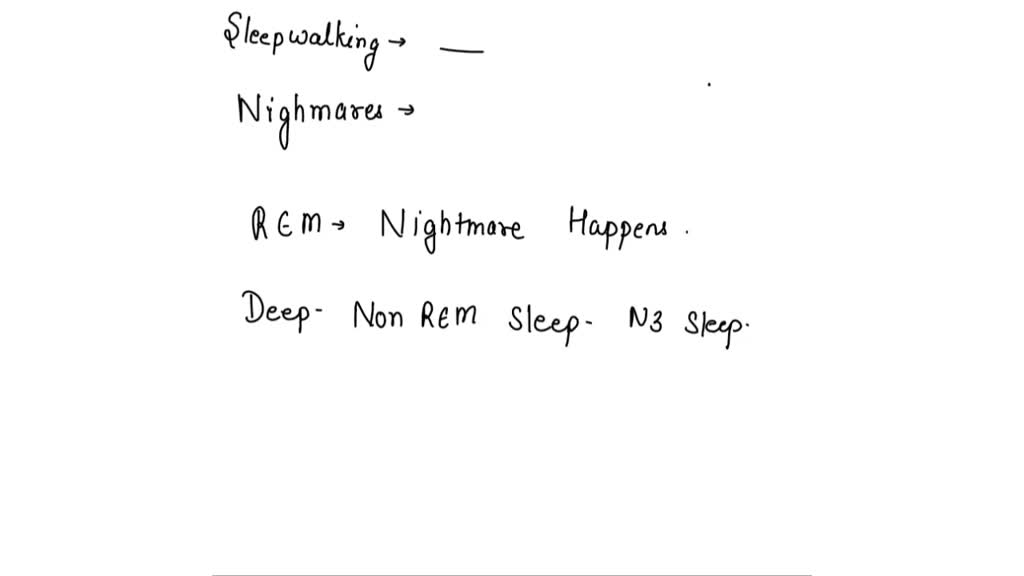 Sleepwalking → __
Nighmares →
REM → Nightmare Happens.
Deep- Non REM Sleep- N3 Sleep.